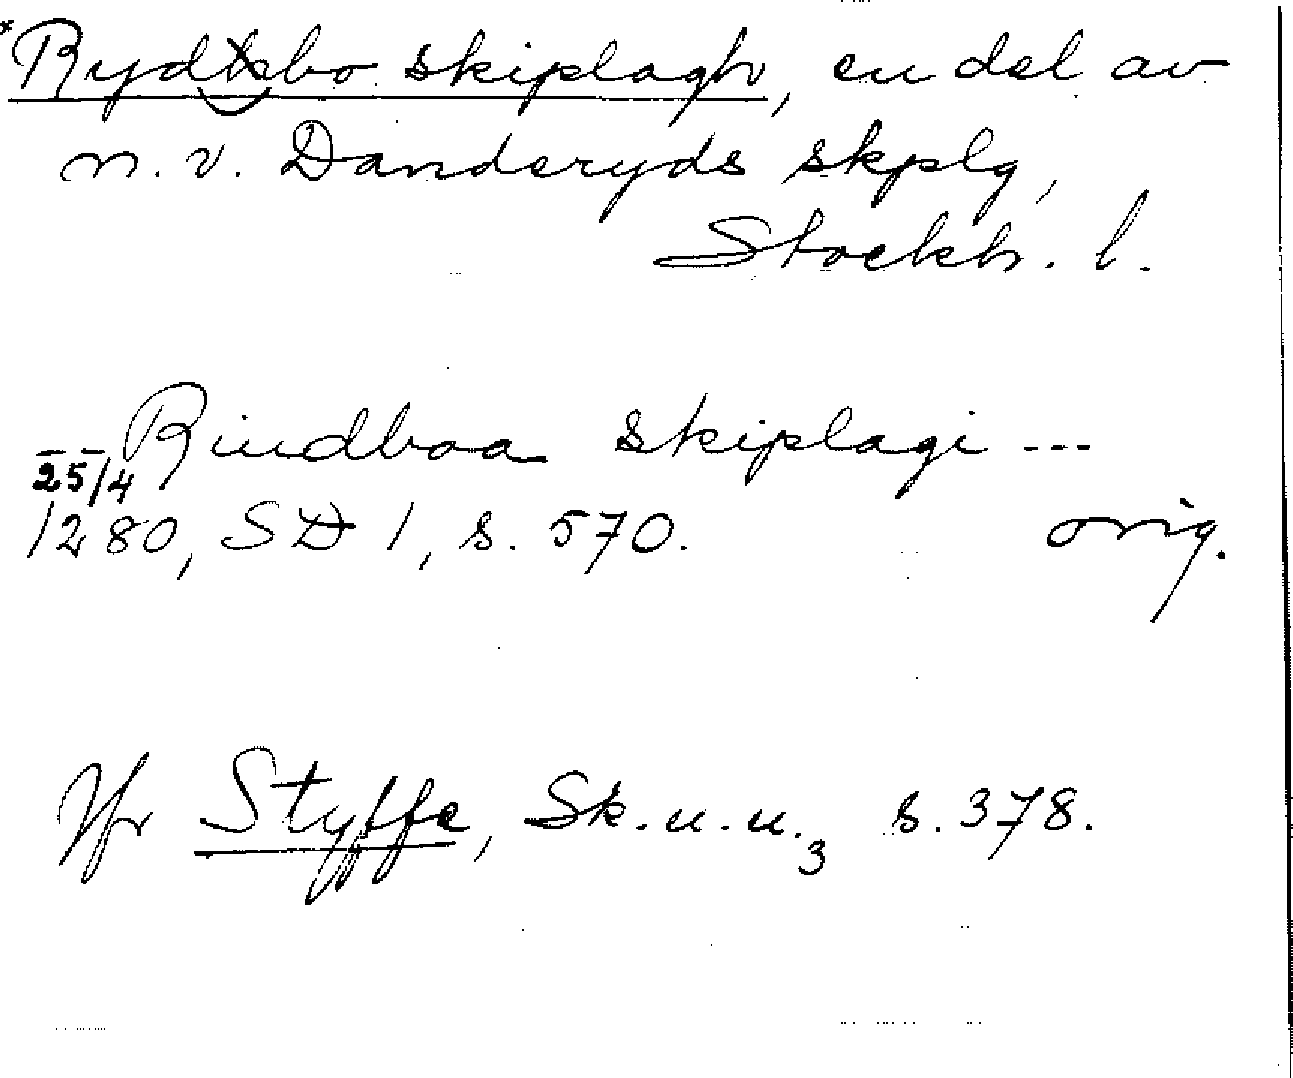 *Rydbo skiplagh, en del av
n. v. Danderyds skplg,
Stockh. l.
Rindboa skiplagi ---
25/4
1280, SD 1, s. 570. orig.
Jfr Styffe, Sk. u. u.3 s. 378.